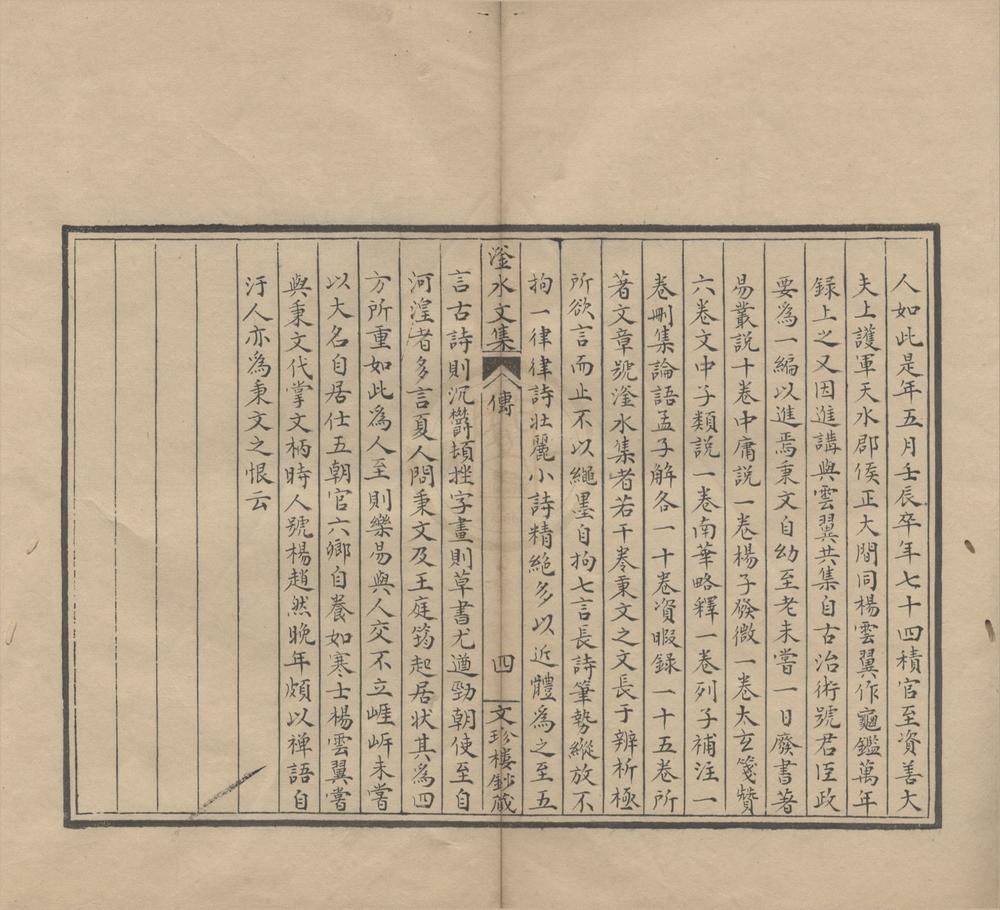 人如此是年五月壬辰卒年七十四積官至資善大
夫上護軍天水郡侯正大間同楊雲翼作龜鑑萬年
録上之又因進講與雲翼共集自古治術號君臣政
要為一編以進焉秉文自幼至老未嘗一日廢書著
易叢説十卷中庸説一卷楊子發微一卷太玄箋贊
六卷文中子類説一卷南華略釋一卷列子補注一
卷刪集論語孟子解各一十卷資暇録一十五卷所
著文章號滏水集者若干卷秉文之文長于辨析極
所欲言而止不以繩墨自拘七言長詩筆勢縱放不
拘一律律詩壯麗小詩精絶多以近體為之至五
滏水文集 傳 四 文珍樓鈔藏
言古詩則沉鬱頓挫字畫則草書尤遒勁朝使至自
河湟者多言夏人問秉文及王庭筠起居状其為四
方所重如此為人至則樂易與人交不立崖岸未嘗
以大名自居仕五朝官六卿自養如寒士楊雲翼嘗
與秉文代掌文柄時人號楊趙然晚年頗以禅語自
汙人亦為秉文之恨云